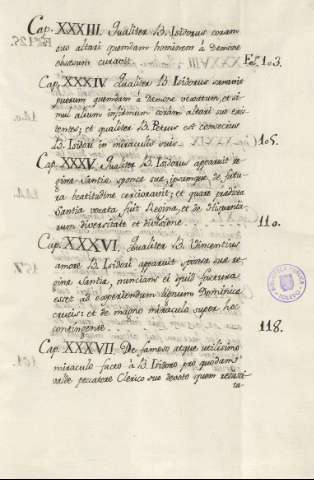 Cap. XXXIII. Qualiter B. Isidorus coram
suo altari quemdam hominem à Demone
obsesum curavit. Fol. 103.
Cap. XXXIV Qualiter B. Isidorus sanavit
puerum quemdam à Demone vexatum, et si-
mul alium infirmum coram altari suo exis-
tentes; et qualiter B. Petrus est convectus
B. Isidori in miraculis suis. 105.
Cap. XXXV. Qualiter B. Isidorus apparuit re-
gina Santia sponse sue, ipsamque de futu-
ra beatitudine certioravit; et quare predicta
Santia vocata fuit Regina, et de Hispania-
rum diversitate et divisione. 110.
Cap. XXXVI. Qualiter B. Vincentius
amore B. Isidori apparuit predicta re-
gina Santia, nuncians ei quid factura
esset ad experiendum lignum Dominica
crucis: et de magno miraculo super hoc
contingente. 118.
Cap. XXXVII De famoso atque utilisimo
miraculo facto à B. Isidoro pro quodam
valde peccatore Clerico suo devoto quem resusci-
ta